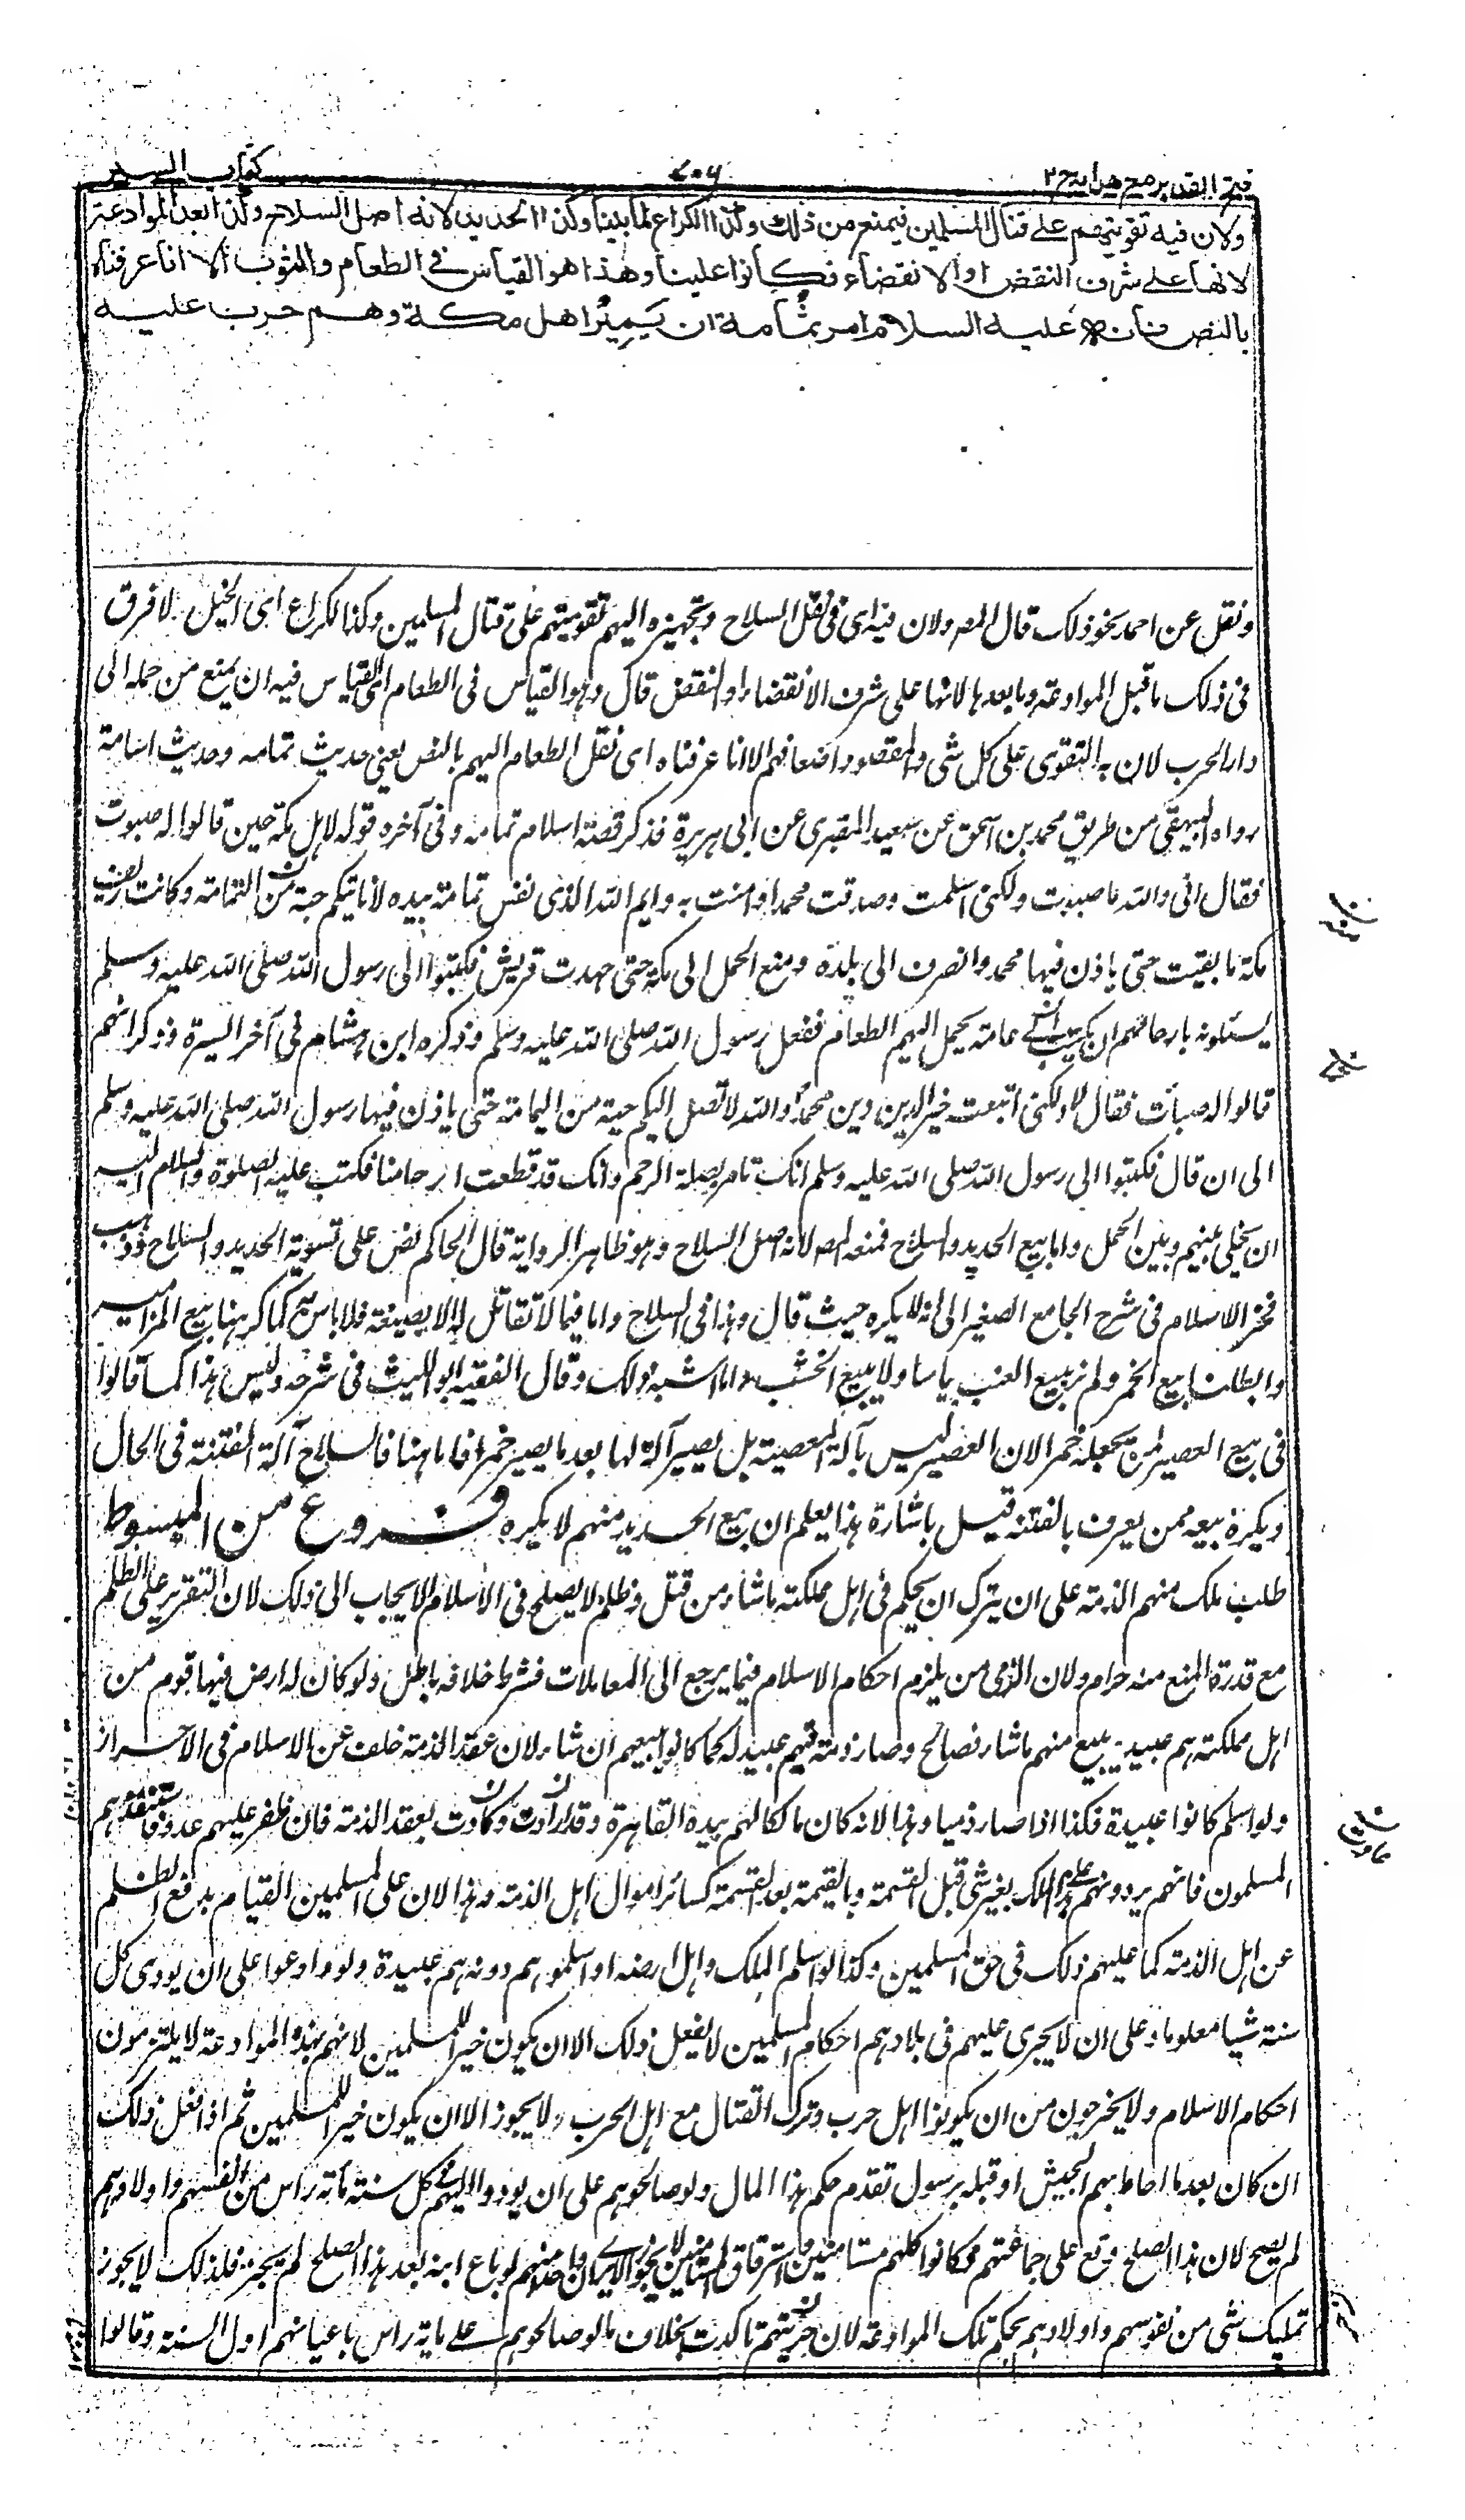 فتح القدير مع هدايه ج٢
٧٠٦
كتاب السير
ولان فيه تقويتهم على قتال المسلمين فيمنع من ذلك وكذا الكراع لما بينا وكذا الحديد لانه اصل السلاح وكذا بعد الموادعة
لانها على شرف النقض او الانقضاء فكانوا حربا علينا وهذا هو القياس في الطعام والثوب الا انا عرفناه
بالنص فانه عليه السلام امر ثمامة ان يمير اهل مكة وهم حرب عليه
ونقل عن احمد نحو ذلك قال المصر ولان فيه اى فى نقل السلاح وتجهيزه اليهم تقويتهم على قتال المسلمين وكذا الكراع اى الخيل لا فرق
فى ذلك ما قبل الموادعة وما بعدها لانها على شرف الانقضاء او النقض قال وهو القياس فى الطعام اى القياس فيه ان يمنع من حمله الى
دار الحرب لان به التقوى على كل شى والمقصود اضعافهم الا انا عرفناه اى نقل الطعام اليهم بالنص يعنى حديث ثمامه وحديث اسامة
رواه البيهقى من طريق محمد بن اسحق عن سعيد المقبرى عن ابى هريرة فذكر قصة اسلام ثمامه وفى آخره قوله لاهل مكة حين قالوا له صبوت
فقال انى والله ما صبوت ولكنى اسلمت وصدقت محمدا وامنت به وايم الله الذى نفس ثمامة بيده لا ناتيكم حبة من الثمامة وكانت ريف
مكة ما بقيت حتى ياذن فيها محمد وانصرف الى بلده ومنع الحمل الى مكة حتى جهدت قريش فكتبوا الى رسول الله صلى الله عليه وسلم
يسئلونه بارحامهم ان يكتب الى ثمامة يحمل اليهم الطعام ففعل رسول الله صلى الله عليه وسلم وذكره ابن هشام فى آخر السيرة وذكر انهم
قالوا له صبات فقال لا ولكنى اتبعت خير الدين دين محمد والله لا تصل اليكم حبة من اليمامة حتى ياذن فيها رسول الله صلى الله عليه وسلم
الى ان قال فكتبوا الى رسول الله صلى الله عليه وسلم انك تامر بصلة الرحم وانك قد قطعت ارحامنا فكتب عليه الصلوة والسلام اليه
ان يخلى بينهم وبين الحمل واما بيع الحديد والسلاح فمنعه المصر لانه اصل السلاح وهو ظاهر الرواية قال الحاكم نص على تسوية الحديد والسلاح وذهب
فخر الاسلام فى شرح الجامع الصغير الى انه لا يكره حيث قال وهذا فى السلاح واما فيما لا تقاتل به الا بصنعة فلا باس به كما كرهنا بيع المزامير
وابطلنا بيع الخمر ولم نر ببيع العنب باسا ولا ببيع الخشب وما اشبه ذلك وقال الفقيه ابو الليث فى شرحه وليس هذا كما قالوا
فى بيع العصير لمن يجعله خمرا لان العصير ليس بآلة المعصية بل يصير آلة لها بعد ما يصير خمرا فاما ههنا فالسلاح آلة الفتنة فى الحال
ويكره بيعه ممن يعرف بالفتنه قيل باشارة هذا يعلم ان بيع الحديد منهم لا يكره فـروع من المبسوط
طلب ملك منهم الذمة على ان يترك ان يحكم فى اهل مملكته ما شاء من قتل وظلم لا يصلح فى الاسلام لا يجاب الى ذلك لان التقرير على الظلم
مع قدرة المنع منه حرام ولان الذمى من يلزم احكام الاسلام فيما يرجع الى المعاملات فشرط خلافه باطل ولو كان له ارض فيها قوم من
اهل مملكته هم عبيده يبيع منهم ما شاء فصالح وصار ذمة فهم عبيد له كما كانوا يبيعهم ان شاء لان عقد الذمة خلف عن الاسلام فى الاحراز
ولو اسلم كانوا عبيده فكذا اذا صار ذميا وهذا لانه كان مالكا لهم بيده القاهرة وقد ازدادت وكادت بعقد الذمة فان ظفر عليهم عدو فاستنقذهم
المسلمون فانهم يردونهم على هذا الملك بغير شى قبل القسمة وبالقيمة بعد القسمة كسائر اموال اهل الذمة وهذا لان على المسلمين القيام بدفع الظلم
عن اهل الذمة كما عليهم ذلك فى حق المسلمين وكذا لو اسلم الملك واهل ارضه او اسلموا هم دونه هم عبيده ولو وادعوا على ان يودى كل
سنة شيا معلوما وعلى ان لا يجرى عليهم فى بلادهم احكام المسلمين لا يفعل ذلك الا ان يكون خيرا للمسلمين لانهم بهذه الموادعة لا يلتزمون
احكام الاسلام ولا يخرجون من ان يكونوا اهل حرب وترك القتال مع اهل الحرب لا يجوز الا ان يكون خيرا للمسلمين ثم اذا فعل ذلك
ان كان بعد ما احاط بهم الجيش او قبله برسول تقدم حكم هذا المال ولو صالحوهم على ان يودوا اليهم كل سنة مأته راس من انفسهم واولادهم
لم يصح لان هذا الصلح وقع على جماعتهم فكانوا كلهم مستامنين واسترقاق المستامنين لا يجوز الا يرى ان واحدا منهم لو باع ابنه بعد هذا الصلح لم يجز فلذلك لا يجوز
تمليك شى من نفوسهم واولادهم بحكم تلك الموادعة لان حريتهم تاكدت بخلاف ما لو صالحوهم على ماية راس باعيانهم اول السنة وقالوا